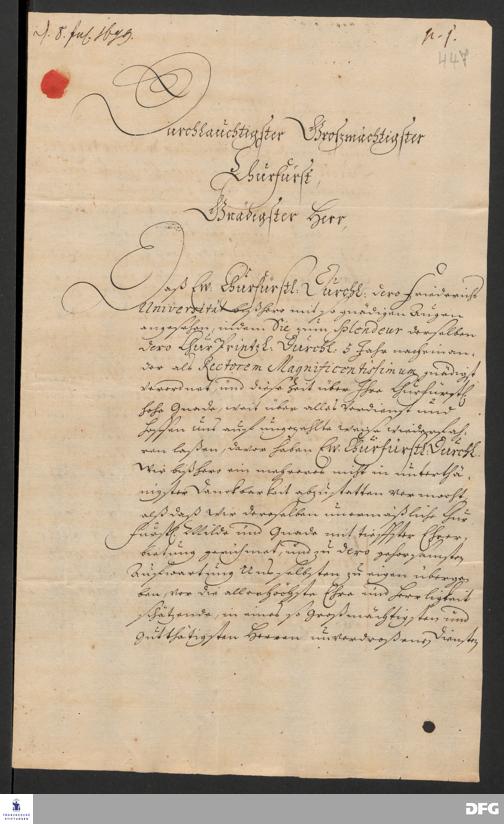 d. 8. Jul. 1699.
n. 1.
447
Durchlauchtigster Großmächtigster
Churfürst,
Gnädigster Herr,
Daß Ew. Churfürstl: Durchl: dero Friederichs
Universität bißhero mit so gnädigen Augen
angesehen, indem Sie zum splendeur derselben
dero ChurPrintzl: Durchl: 5 Jahr nacheinan-
der als Rectorem Magnificentissimum gnädigst
verordnet, und diese Zeit über Ihre Churfürstl
hohe Gnade, weit über alles Verdienst und
hoffen uns auf ungezehlte weise wiederfah-
ren laßen, davor haben Ew. Churfürstl Durchl.
Wir bißhero ein mehreres nicht in unterthä-
nigster Danckbarkeit abzustatten vermocht
alß daß Wir deroselben unermäßliche Chur
Fürstl. Milde und Gnade mit tieffster Ehrer-
bietung gerühmet, und zu dero gehorsamsten
Aufwartung Uns selbsten zu eigen uberge-
ben, vor die allerhöchste Ehre und Herrligkeit
schätzende, in eines so Großmächtigsten und
gutthätigsten Herren unverdroßenen Diensten
FRANCKESCHE
STIFTUNGEN
DFG